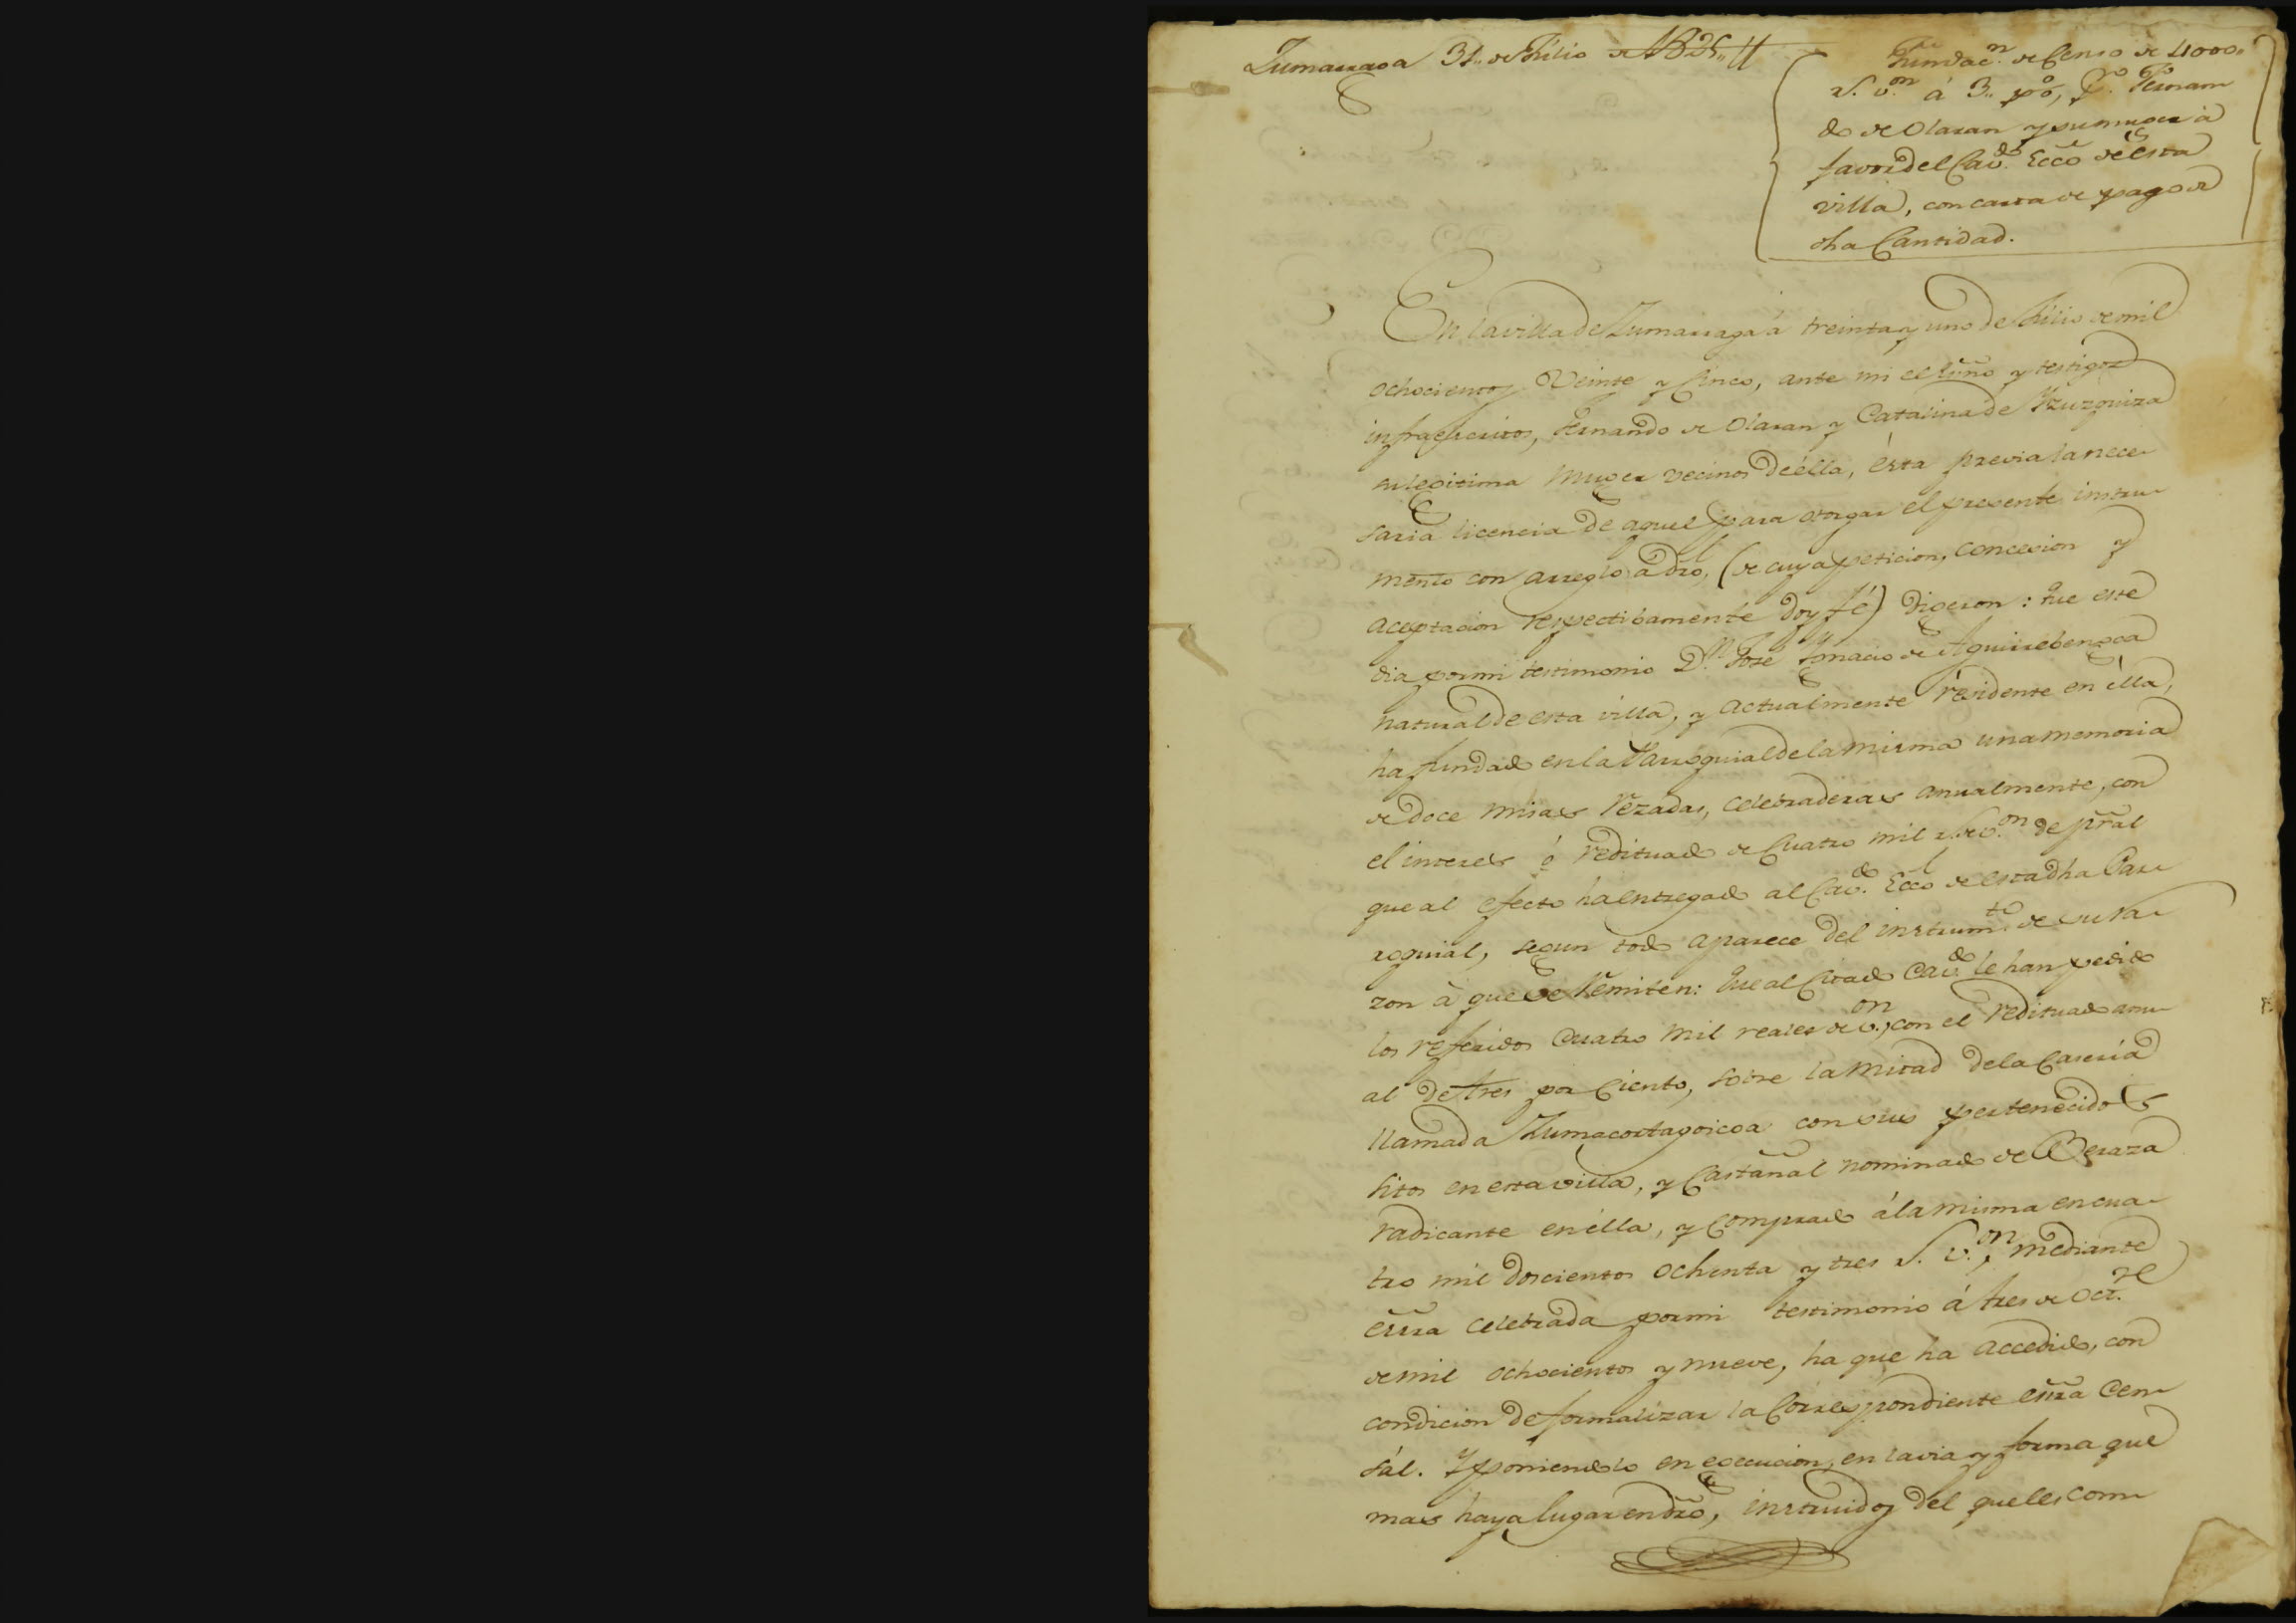 Zumarraga 31,, de Julio de 1825,,
Fundac.n de Censo de 4000,,
r.s v.on á 3,, p%, p.r Fernan
do de Olaran y su muger á
favor del Cav.do Ecco de esta
villa, con carta de pago de
dha Cantidad.
En la villa de Zumarraga á treinta y uno de Julio de mil
ochocientos Veinte y Cinco, ante mi el Esño y testigos
infraescritos, Fernando de Olaran y Catalina de Yzuzquiza
su legitima muger vecinos de élla, ésta previa la nece
saria licencia de aquel para otorgar el presente instru
mento con arreglo a dro, (de cuya peticion, concesion y
aceptacion respectibamente doy fé) digeron: Que este
dia por mi testimonio D.n José Ygnacio de Aguirrebengoa
natural de esta villa, y actualmente residente en élla,
ha fundado en la Parroquial de la misma una memoria
de doce misas rezadas, celebraderas anualmente, con
el interes ó redituado de Cuatro mil r.s de v.on de pral
que al efecto ha entregado al Cav.do Ecco de esta dha Par
roquial, segun todo aparece del instrum.to de su ra
zon á que se remiten: Que al Citado Cav.do le han pedido
los referidos Cuatro mil reales de v.on, con el redituado anu
al de tres por Ciento, sobre la mitad de la Caseria
llamada Zumacortagoicoa con sus pertenecidos
sitos en esta villa, y Castañal nominado de Beraza
radicante en élla, y Comprado á la misma en cua
tro mil doscientos ochenta y tres r.s v.on, mediante
esrra celebrada por mi testimonio á tres de Oct.re
de mil ochocientos y nueve, ha que ha accedido, con
condicion de formalizar la Correspondiente esrra Cen
sál. Y poniendolo en egecucion, en la via y forma que
mas haya lugar en dro, instruidos del que les com